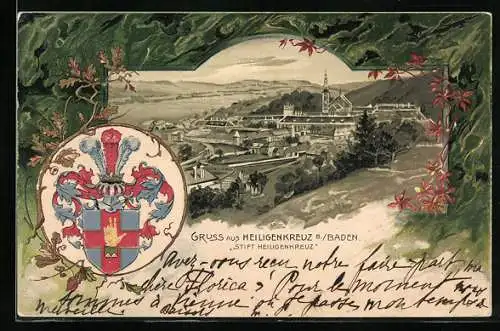 GRUSS AUS HEILIGENKREUZ B/BADEN.
„STIFT HEILIGENKREUZ"
Avez-vous reçu notre faire-part ma
chère Florica? Pour le moment nous
sommes à Vienne où je passe mon temps à
merveille.